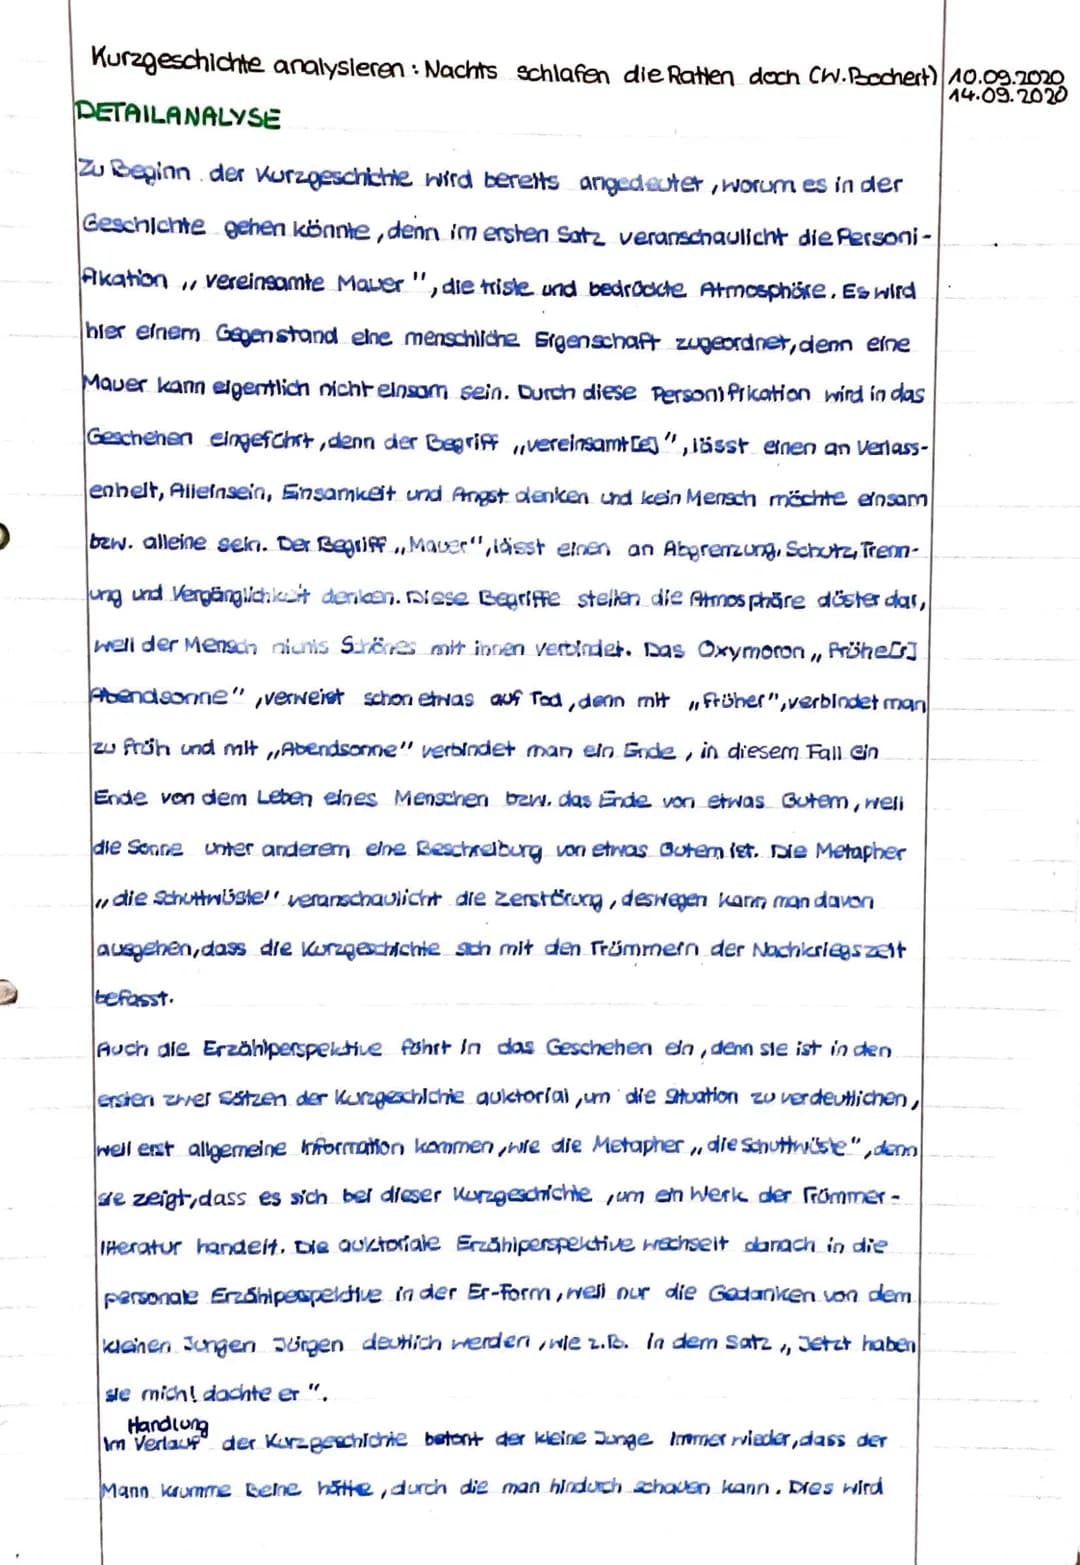 Kurzgeschichte analysieren : Nachts schlafen die Ratten doch (W.Bochert) 10.09.2020
14.09.2020
DETAILANALYSE
Zu Beginn der Kurzgeschichte wird bereits angedeutet, worum es in der
Geschichte gehen könnte, denn im ersten Satz veranschaulicht die Personi-
fikation „vereinsamte Mauer", die triste und bedrückte Atmosphäre. Es wird
hier einem Gegenstand eine menschliche Eigenschaft zugeordnet, denn eine
Mauer kann eigentlich nicht einsam sein. Durch diese Personifikation wird in das
Geschehen eingeführt, denn der Begriff „vereinsamt[e]", lässt einen an Verlass-
enheit, Alleinsein, Einsamkeit und Angst denken und kein Mensch möchte einsam
bzw. alleine sein. Der Begriff „Mauer", lässt einen an Abgrenzung, Schutz, Trenn-
ung und Vergänglichkeit denken. Diese Begriffe stellen die Atmosphäre düster dar,
weil der Mensch nichts Schönes mit ihnen verbindet. Das Oxymoron „frühe[r]
Abendsonne", verweist schon etwas auf Tod, denn mit „früher", verbindet man
zu früh und mit „Abendsonne" verbindet man ein Ende, in diesem Fall ein
Ende von dem Leben eines Menschen bzw. das Ende von etwas Gutem, weil
die Sonne unter anderem eine Beschreibung von etwas Gutem ist. Die Metapher
„die Schuttwüste" veranschaulicht die Zerstörung, deswegen kann man davon
ausgehen, dass die Kurzgeschichte sich mit den Trümmern der Nachkriegszeit
befasst.
Auch die Erzählperspektive führt in das Geschehen ein, denn sie ist in den
ersten zwei Sätzen der Kurzgeschichte auktorial, um die Situation zu verdeutlichen,
weil erst allgemeine Information kommen, wie die Metapher „die Schuttwüste", denn
sie zeigt, dass es sich bei dieser Kurzgeschichte, um ein Werk der Trümmer-
literatur handelt. Die auktoriale Erzählperspektive wechselt danach in die
personale Erzählperspektive in der Er-Form, weil nur die Gedanken von dem
kleinen Jungen Jürgen deutlich werden, wie z.B. in dem Satz „Jetzt haben
sie mich! dachte er".
Handlung
Im Verlauf der Kurzgeschichte betont der kleine Junge immer wieder, dass der
Mann krumme Beine hätte, durch die man hinduch schauen kann. Dies wird